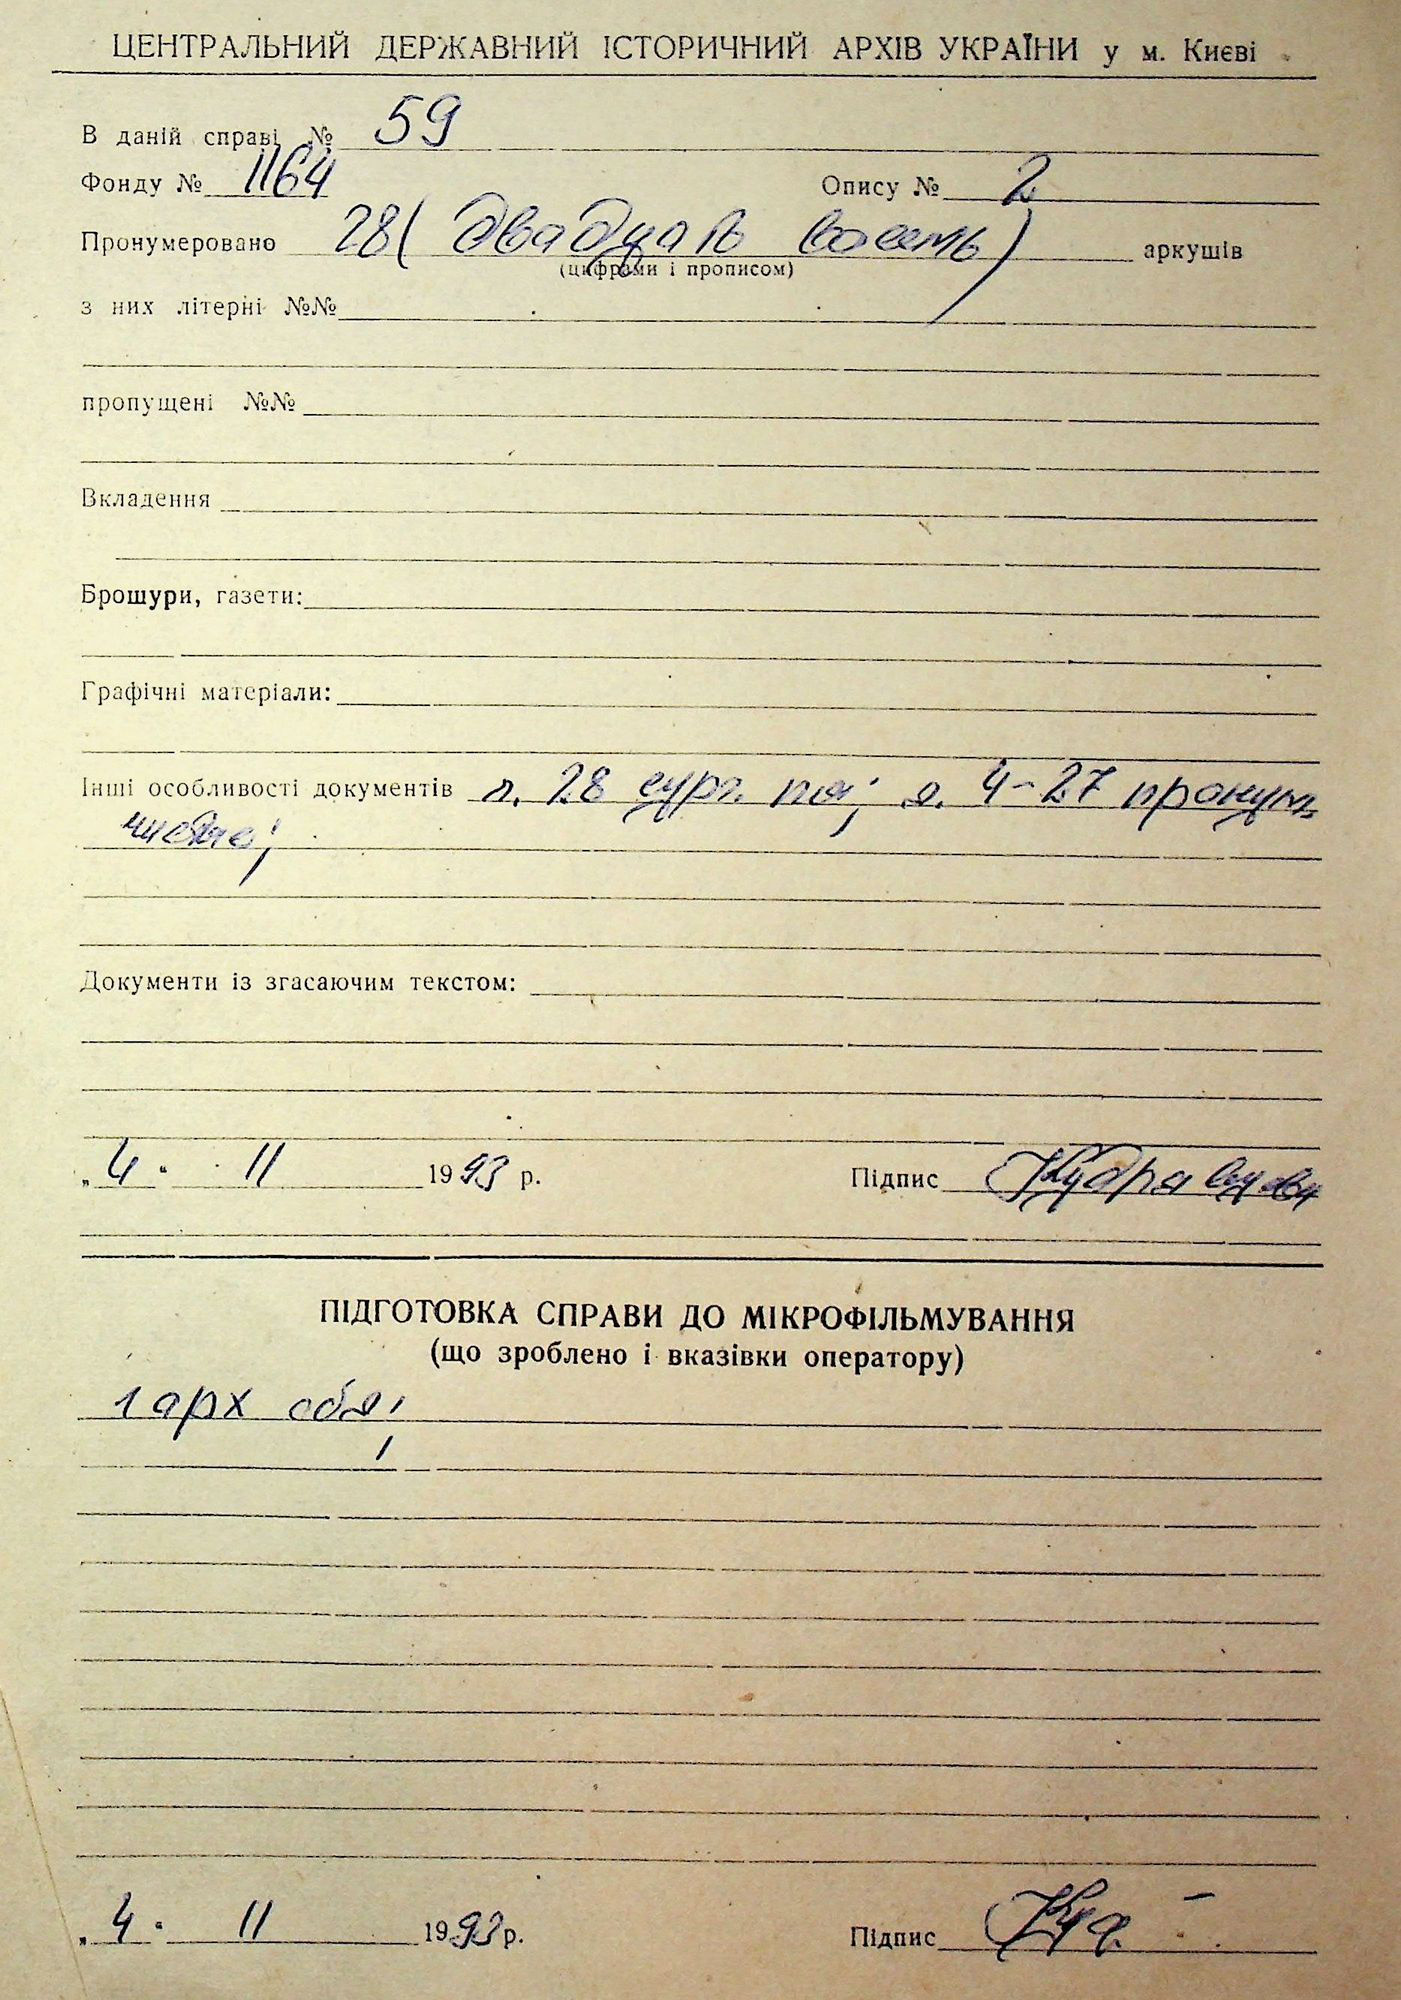 ЦЕНТРАЛЬНИЙ ДЕРЖАВНИЙ ІСТОРИЧНИЙ АРХІВ УКРАЇНИ у м. Києві
В даній справі № 59
Фонду № 1164 Опису № 2
Пронумеровано 28 (двадцать восемь) аркушів
(цифрами і прописом)
з них літерні №№
пропущені №№
Вкладення
Брошури, газети:
Графічні матеріали:
Інші особливості документів л. 28 сург. печ; л. 4-27 пронум.
чистые;
Документи із згасаючим текстом:
„4" 11 1993 р. Підпис
ПІДГОТОВКА СПРАВИ ДО МІКРОФІЛЬМУВАННЯ
(що зроблено і вказівки оператору)
1 арх обл;
„4" 11 1993 р. Підпис